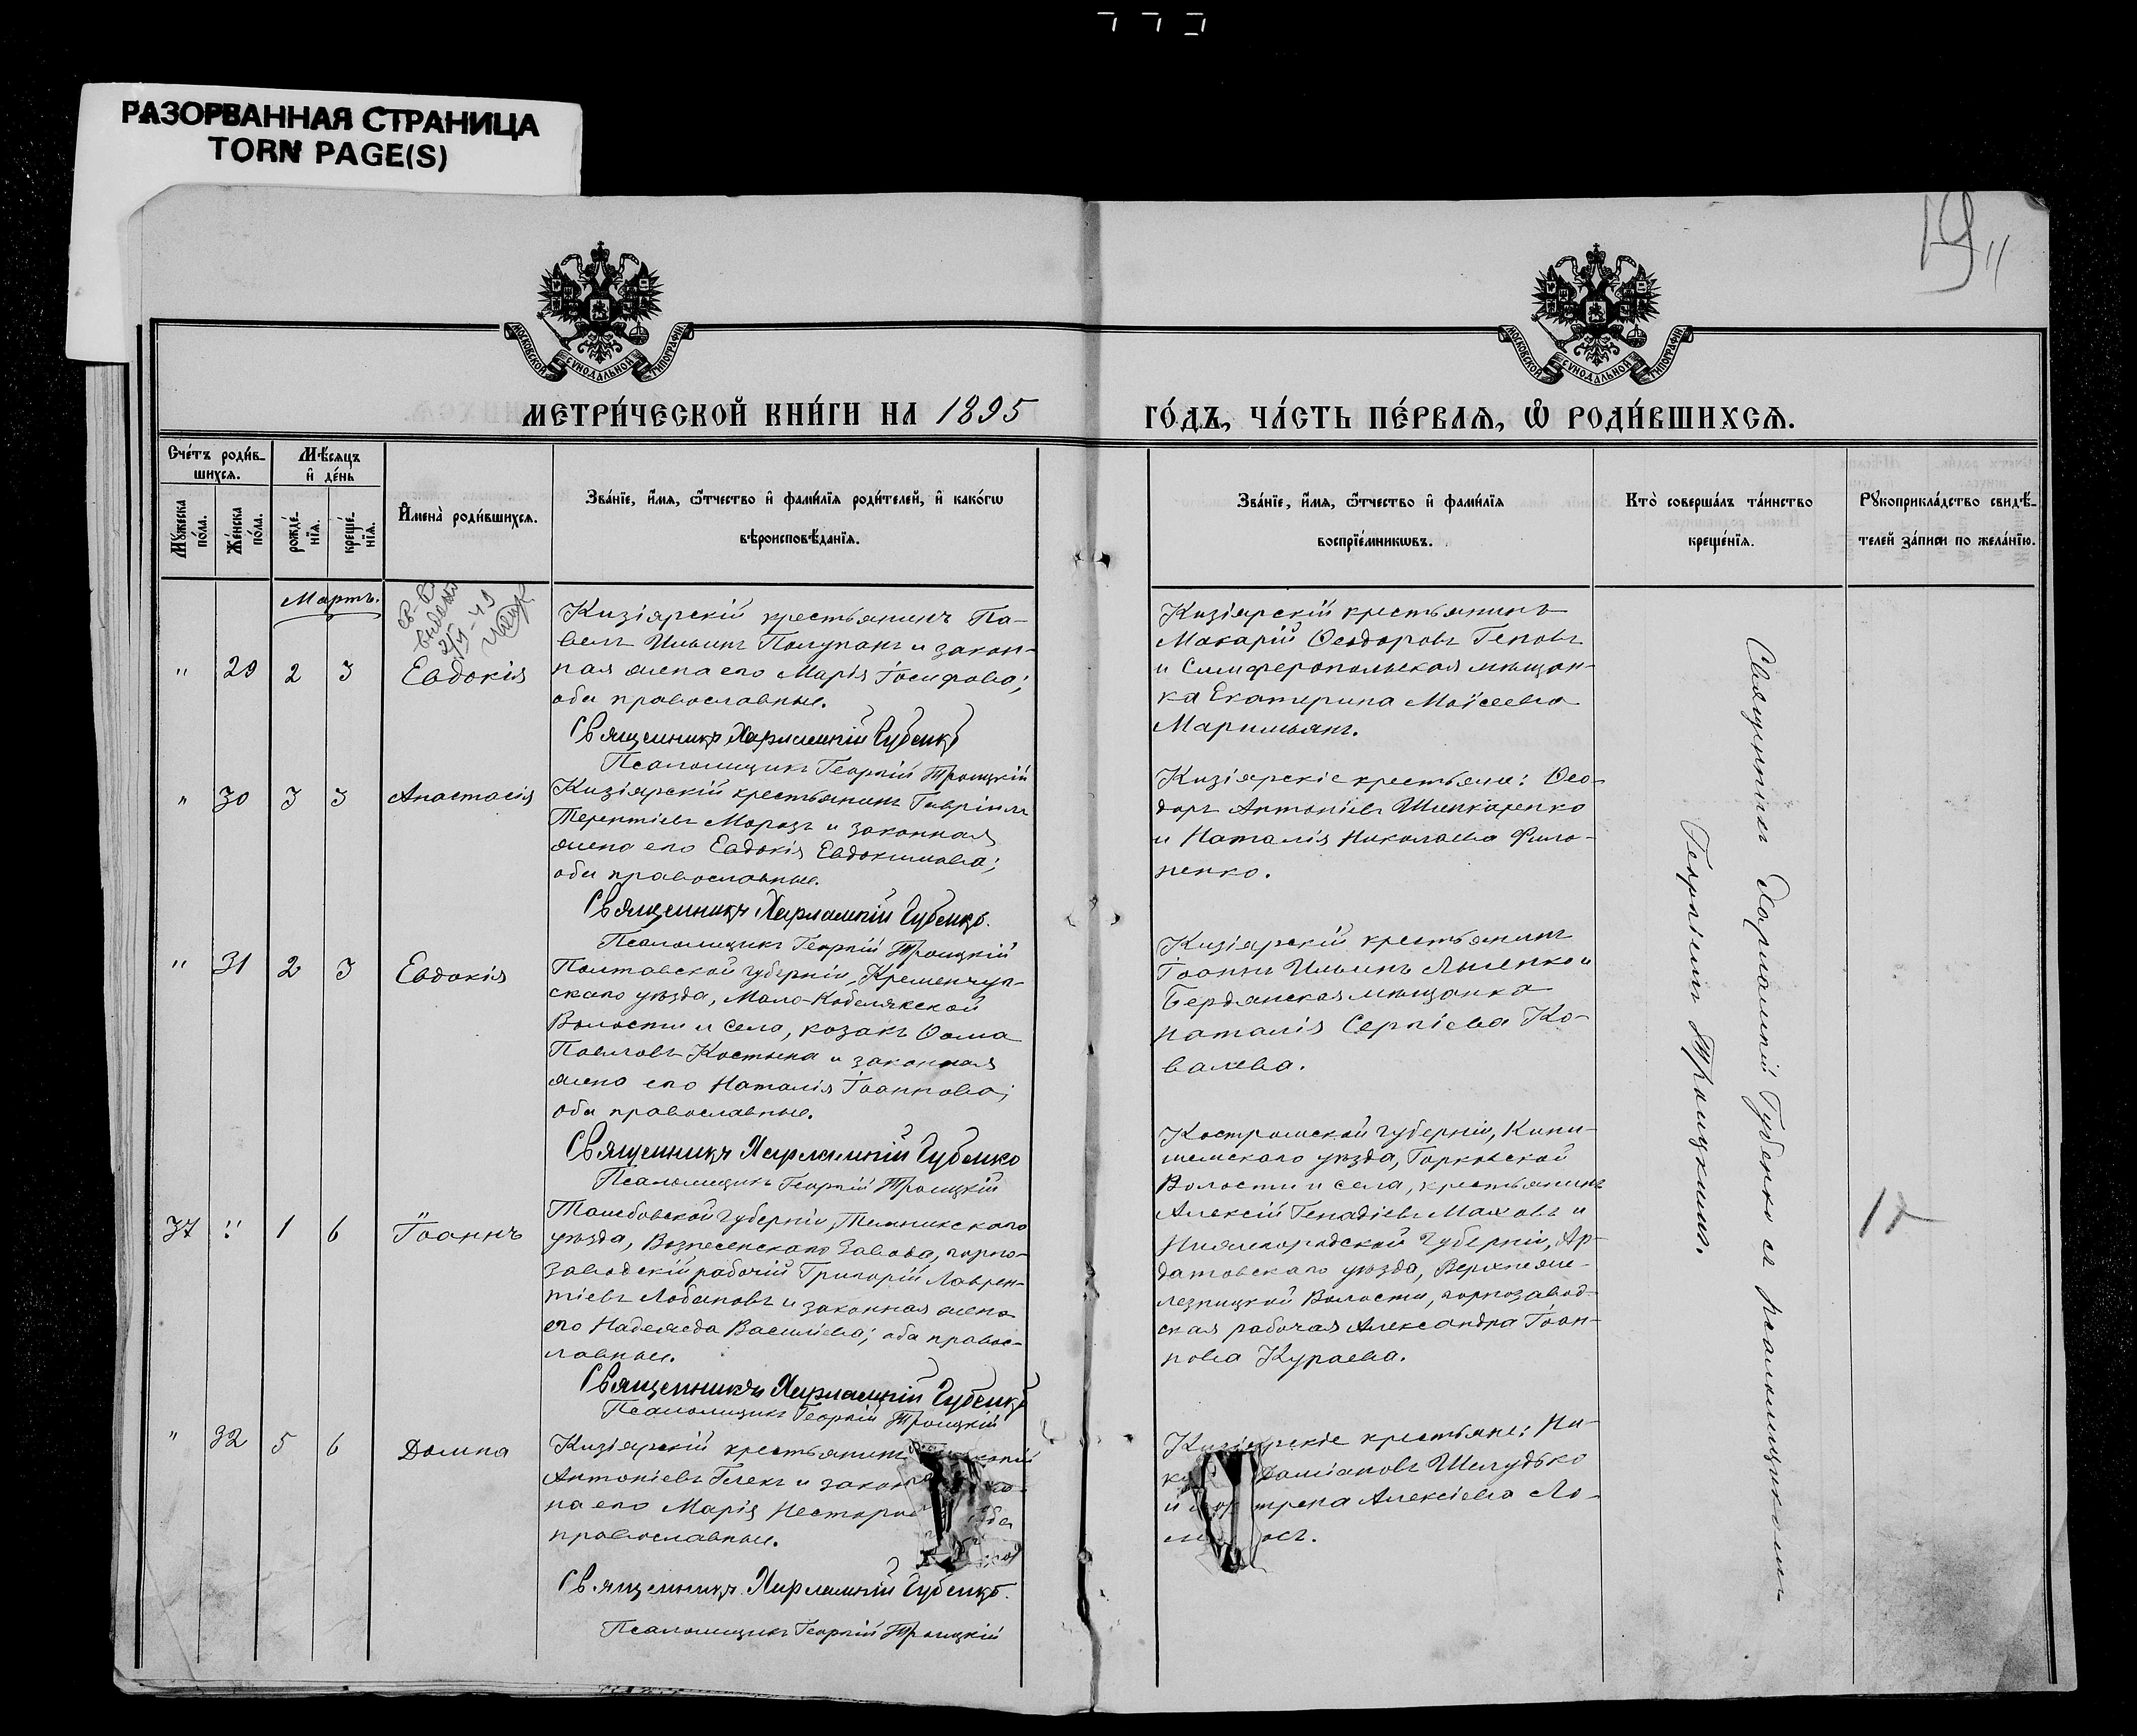 РАЗОРВАННАЯ СТРАНИЦА
TORN PAGE(S)
19
МОСКОВСКОЙ СѴНОДАЛЬНОЙ ТИПОГРАФІИ
МОСКОВСКОЙ СѴНОДАЛЬНОЙ ТИПОГРАФІИ
МЕТРИ́ЧЕСКОЙ КНИ́ГИ НА 1895
ГО́ДЪ, ЧА́СТЬ ПЕ́РВАЯ, Ѿ РОДИ́ВШИХСѦ.
Сче́тъ роди́в-
шихсѧ.
Мѣ́сѧцъ
и҆ де́нь
Мꙋ́жеска
по́ла.
Же́нска
по́ла.
рожде́-
нїѧ.
креще́-
нїѧ.
И҆мена̀ роди́вшихсѧ.
Зва́нїе, и҆́мѧ, ѻ҆́тчество и҆ фами́лїѧ роди́телей, и҆ како́гѡ
вѣроисповѣ́данїѧ.
Зва́нїе, и҆́мѧ, ѻ҆́тчество и҆ фами́лїѧ
воспрїе́мникѡвъ.
Кто̀ соверша́лъ та́инство
креще́нїѧ.
Рꙋкоприкла́дство свидѣ́-
телей за́писи по жела́нїю.
Мартъ.
" 29 2 3 Евдокія
Кизіярскій крестьянинъ Па-
велъ Ильинъ Полупанъ и закон-
ная жена его Марія Іосифова;
оба православные.
Священникъ Харлампій Губенко
Псаломщикъ Георгій Троицкій
Кизіярскій крестьянинъ
Макарій Ѳеодоровъ Геновъ
и Симферопольская мѣщан-
ка Екатерина Моісеева
" 30 3 3 Анастасія
Кизіярскій крестьянинъ Гавріилъ
Терентіевъ Морозъ и законная
жена его Евдокія Евдокимова;
оба православные.
Священникъ Харлампій Губенко.
Псаломщикъ Георгій Троицкій
Кизіярскіе крестьяне: Ѳео-
доръ Антоніевъ Шинкаренко
и Наталія Николаева Фило-
ненко.
" 31 2 3 Евдокія
Полтавской губерніи, Кременчуг-
скаго уѣзда, Мало-Кобелякской
Волости и села, козакъ Ѳома
Павловъ Костына и законная
жена его Наталія Іоаннова;
оба православные.
Священникъ Харлампій Губенко
Псаломщикъ Георгій Троицкій
Кизіярскій крестьянинъ
Іоаннъ Ильинъ Лысенко и
Бердянская мѣщанка
Наталія Сергіева Ко-
валева.
37 " 1 6 Іоаннъ
Тамбовской губерніи, Темникскаго
уѣзда, Вознесенскаго Завода, горно-
заводскій рабочій Григорій Лаврен-
тіевъ Лобановъ и законная жена
его Надежда Василіева; оба правос-
лавные.
Священникъ Харлампій Губенко
Псаломщикъ Георгій Троицкій
Костромской губерніи, Кини-
шемскаго уѣзда, Горкинской
Волости и села, крестьянинъ
Алексій Генадіевъ Маховъ и
Нижегородской Губерніи, Ар-
датовскаго уѣзда, Верхнеже-
лезницкой Волости, горнозавод-
ская рабочая Александра Іоан-
нова Кураева.
" 32 5 6 Домна
Кизіярскій крестьянинъ
Антоніевъ Гелехъ и закон
на его Марія Несторо
православные.
Священникъ Харлампій Губенко.
Псаломщикъ Георгій Троицкій
Кизіярскіе крестьяне: Ни-
Даміановъ Шелудько
Алексіева Ло-
Священникъ Харлампій Губенко съ псаломщикомъ
Георгіемъ Троицкимъ.